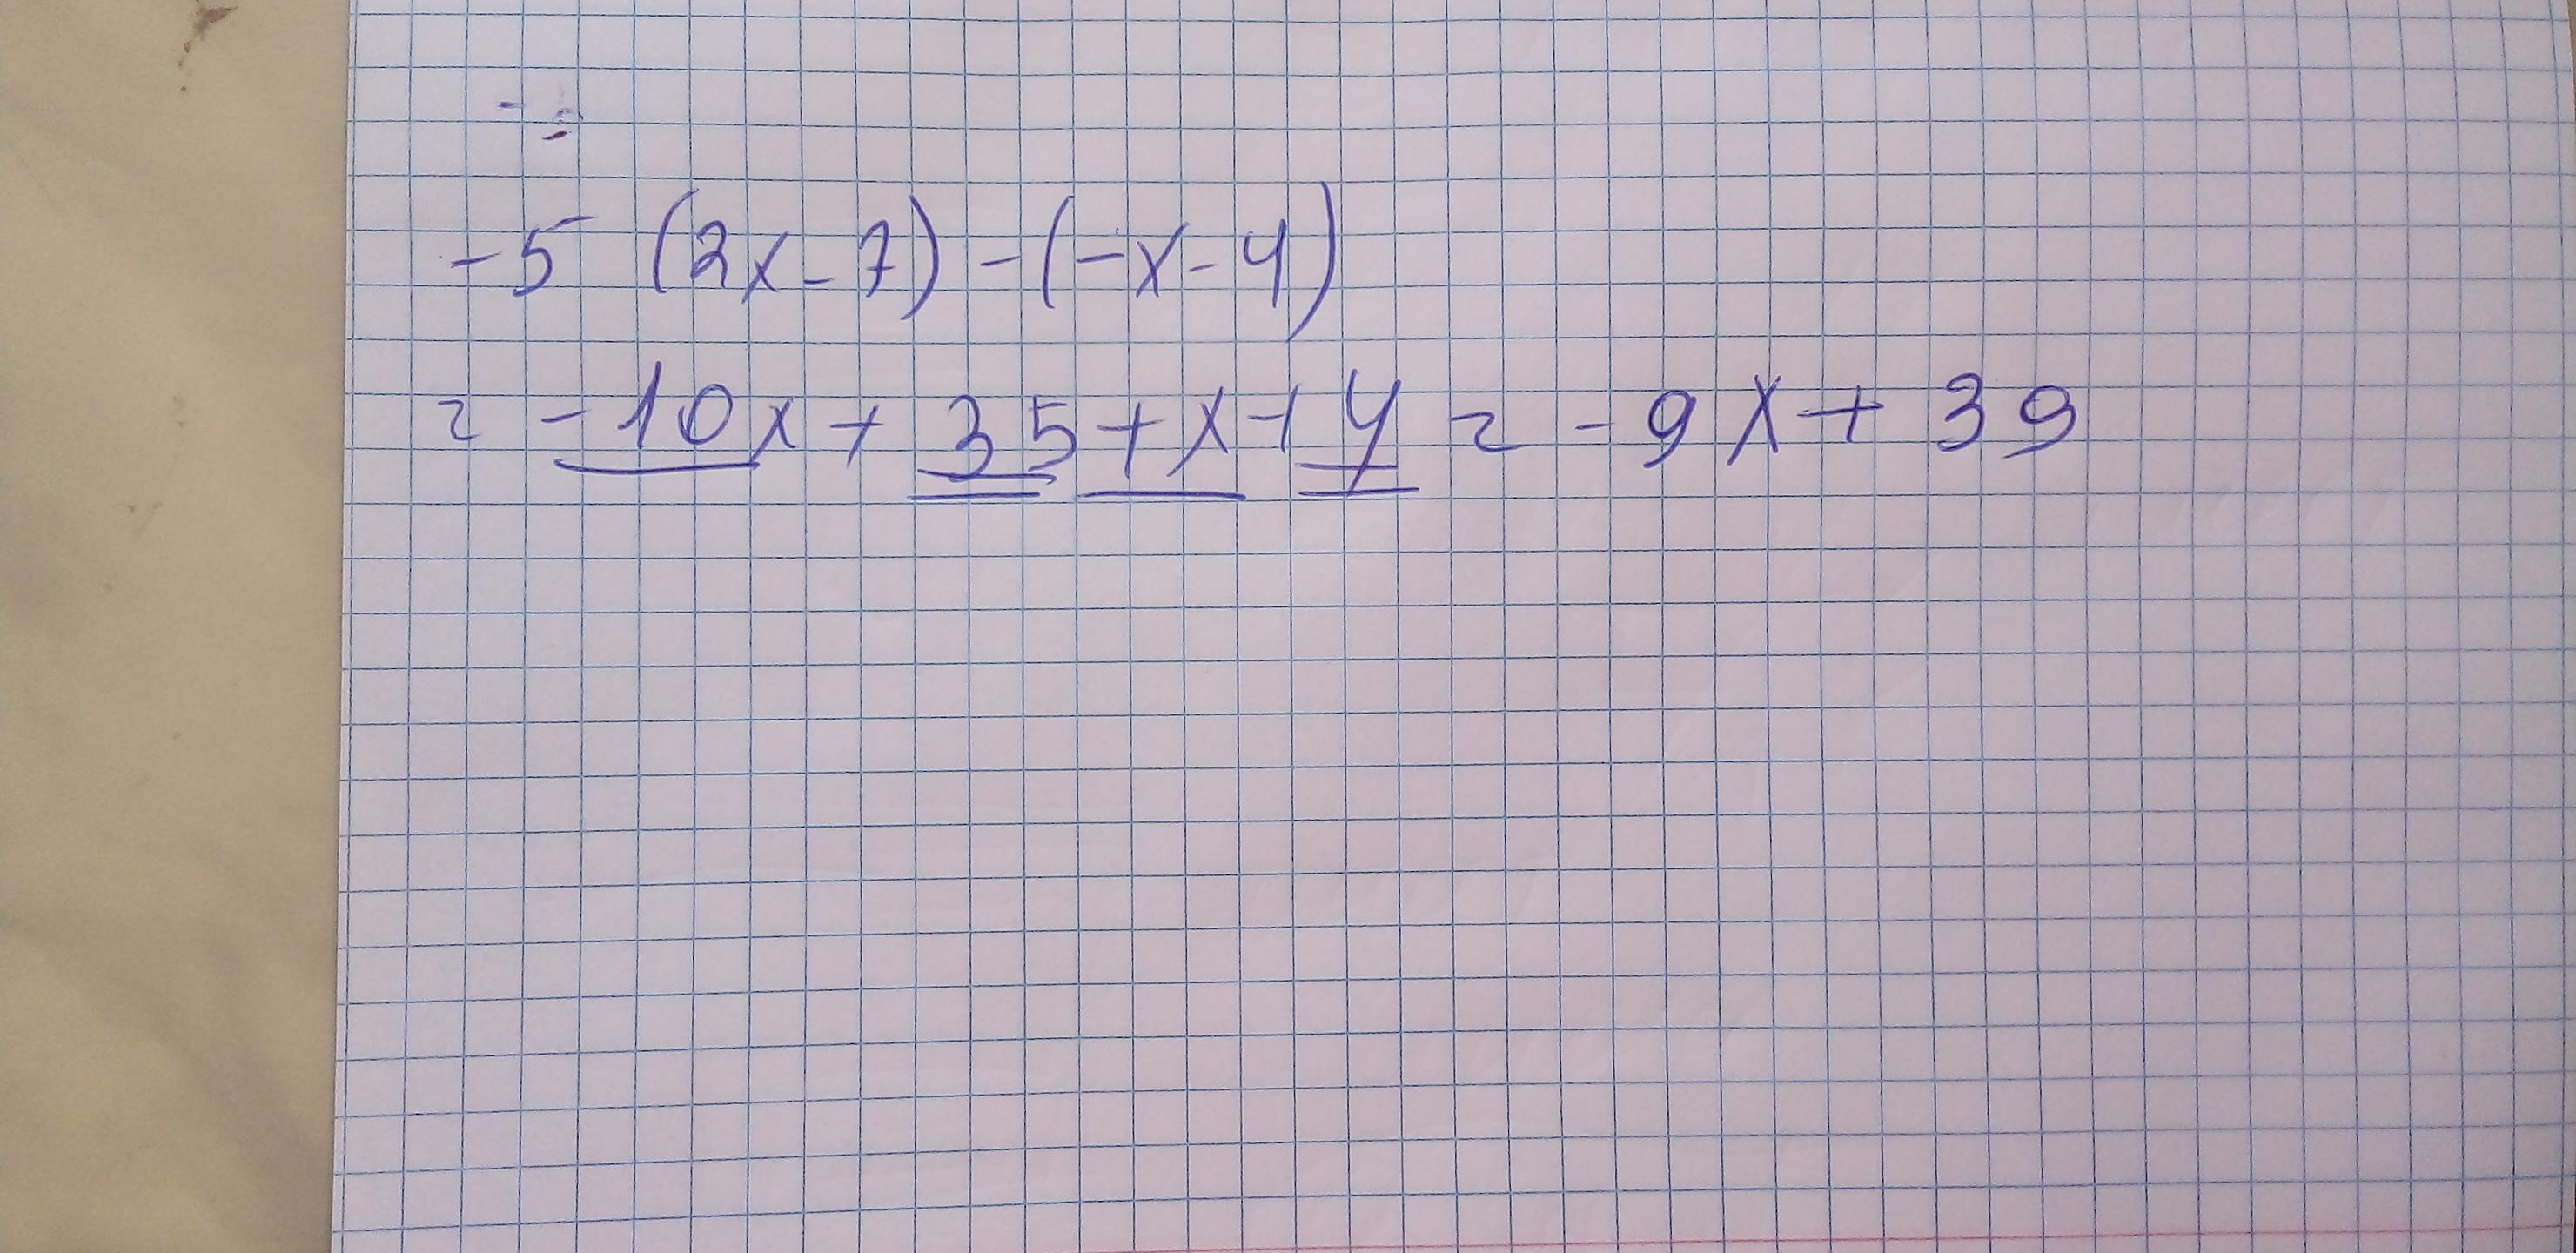 -5 (2x-7)-(-x-4)
= -10x+35+x+4 = -9x+39